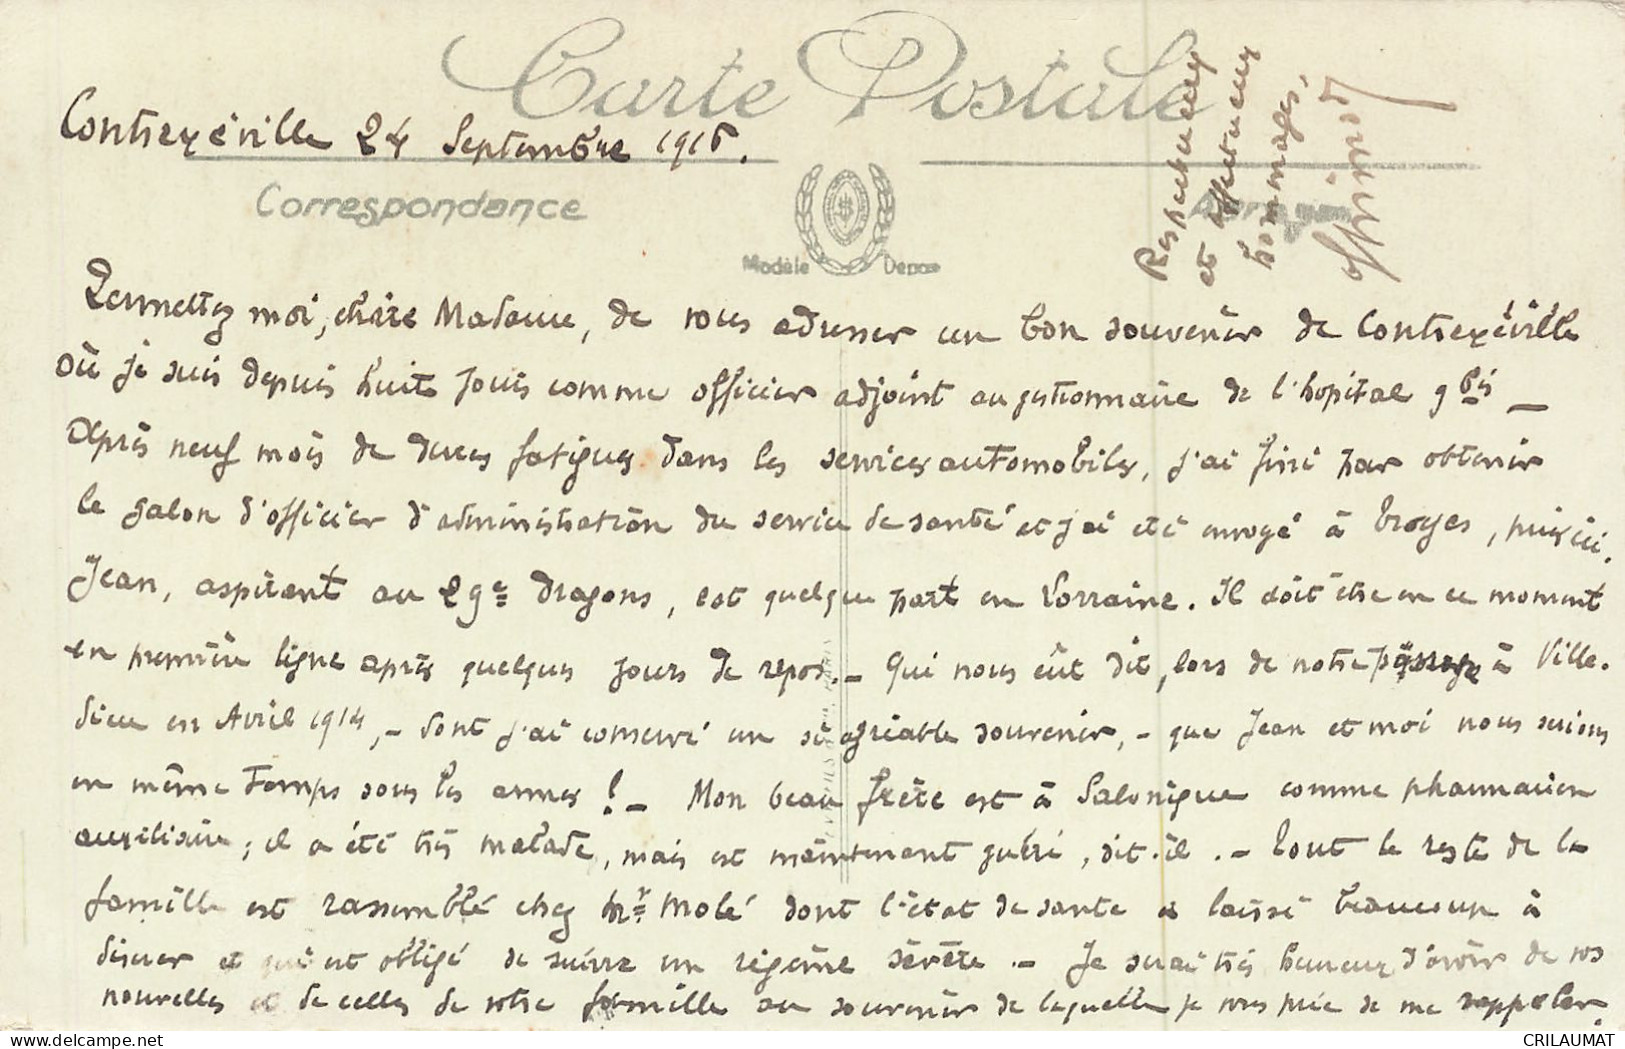 Carte Postale
Contrexéville 24 Septembre 1916.
Correspondance
Modèle Déposé
Respectueux
et affectueux
hommages,
Permettez moi, chère Madame, de vous adresser un bon souvenir de Contrexéville
où je suis depuis huit jours comme officier adjoint au gestionnaire de l'hopital
Après neuf mois de dures fatigues dans les services automobiles, j'ai fini par obtenir
le galon d'officier d'administration du service de santé et j'ai été envoyé à Troyes, puis ici.
Jean, aspirant au 29e dragons, est quelque part en Lorraine. Il doit être en ce moment
en première ligne après quelques jours de repos. - Qui nous eût dit, lors de notre passage à Ville-
dieu en Avril 1914, - dont j'ai conservé un si agréable souvenir, - que Jean et moi nous serions
en même temps sous les armes ! - Mon beau frère est à Salonique comme pharmacien
auxiliaire ; il a été très malade, mais est maintenant guéri, dit-il. - Tout le reste de la
famille est rassemblé chez Mr Molé dont l'état de santé a laissé beaucoup à
désirer et qui est obligé de suivre un régime sévère. - Je serai très heureux d'avoir de vos
nouvelles et de celles de votre famille au souvenir de laquelle je vous prie de me rappeler.
www.delcampe.net
CRILAUMAT